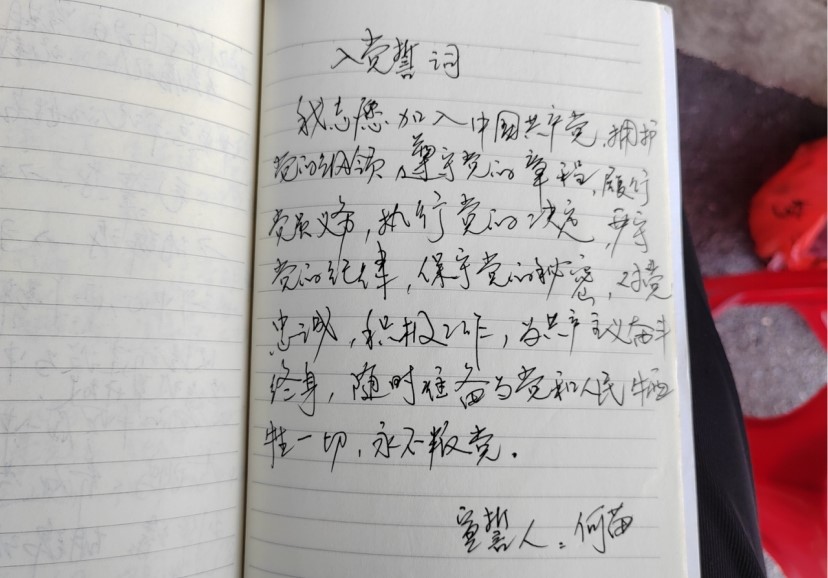 入党誓词
我志愿加入中国共产党,拥护
党的纲领,遵守党的章程,履行
党员义务,执行党的决定,严守
党的纪律,保守党的秘密,对党
忠诚,积极工作,为共产主义奋斗
终身,随时准备为党和人民牺
牲一切,永不叛党。
宣誓人:何苗